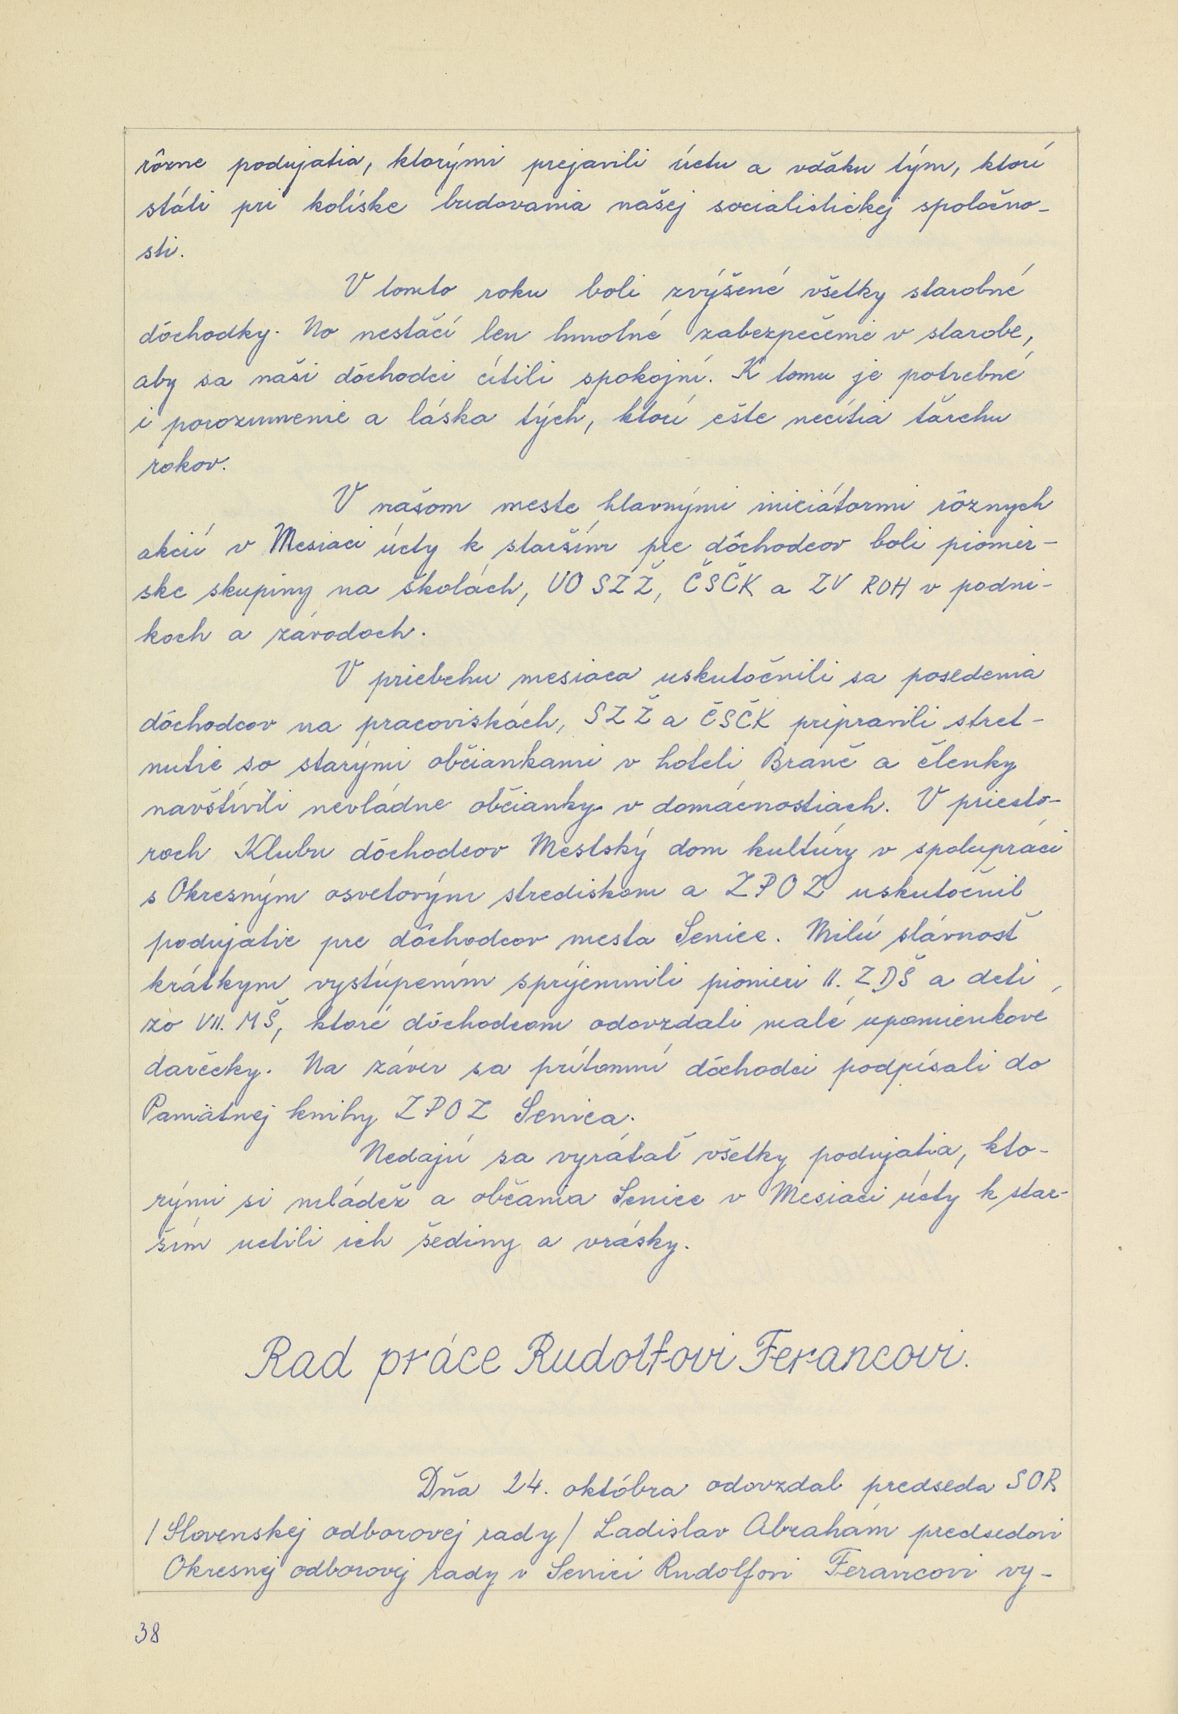 rôzne podujatia, ktorými prejavili úctu a vďaku tým, ktorí
stáli pri kolíske budovania našej socialistickej spoločno-
sti.
V tomto roku boli zvýšené všetky starobné
dôchodky. No nestačí len hmotné zabezpečenie v starobe,
aby sa naši dôchodci cítili spokojní. K tomu je potrebné
i porozumenie a láska tých, ktorí ešte necítia ťarchu
rokov.
V našom meste hlavnými iniciátormi rôznych
akcií v Mesiaci úcty k starším pre dôchodcov boli pionier-
ske skupiny na školách, VO SZŽ, ČSČK a ZV ROH v podni-
koch a závodoch.
V priebehu mesiaca uskutočnili sa posedenia
dôchodcov na pracoviskách, SZŽ a ČSČK pripravili stret-
nutie so starými občiankami v hoteli Branč a členky
navštívili nevládne občianky v domácnostiach. V priesto-
roch Klubu dôchodcov Mestský dom kultúry v spolupráci
s Okresným osvetovým strediskom a ZPOZ uskutočnil
podujatie pre dôchodcov mesta Senice. Milú slávnosť
krátkym vystúpením spríjemnili pionieri II. ZDŠ a deti
zo VII. MŠ, ktoré dôchodcom odovzdali malé upomienkové
darčeky. Na záver sa prítomní dôchodci podpísali do
Pamätnej knihy ZPOZ Senica.
Nedajú sa vyrátať všetky podujatia, kto-
rými si mládež a občania Senice v Mesiaci úcty k star-
ším uctili ich šediny a vrásky.
Rad práce Rudolfovi Ferancovi.
Dňa 24. októbra odovzdal predseda SOR
/Slovenskej odborovej rady/ Ladislav Abrahám predsedovi
Okresnej odborovej rady v Senici Rudolfovi Ferancovi vy-
38